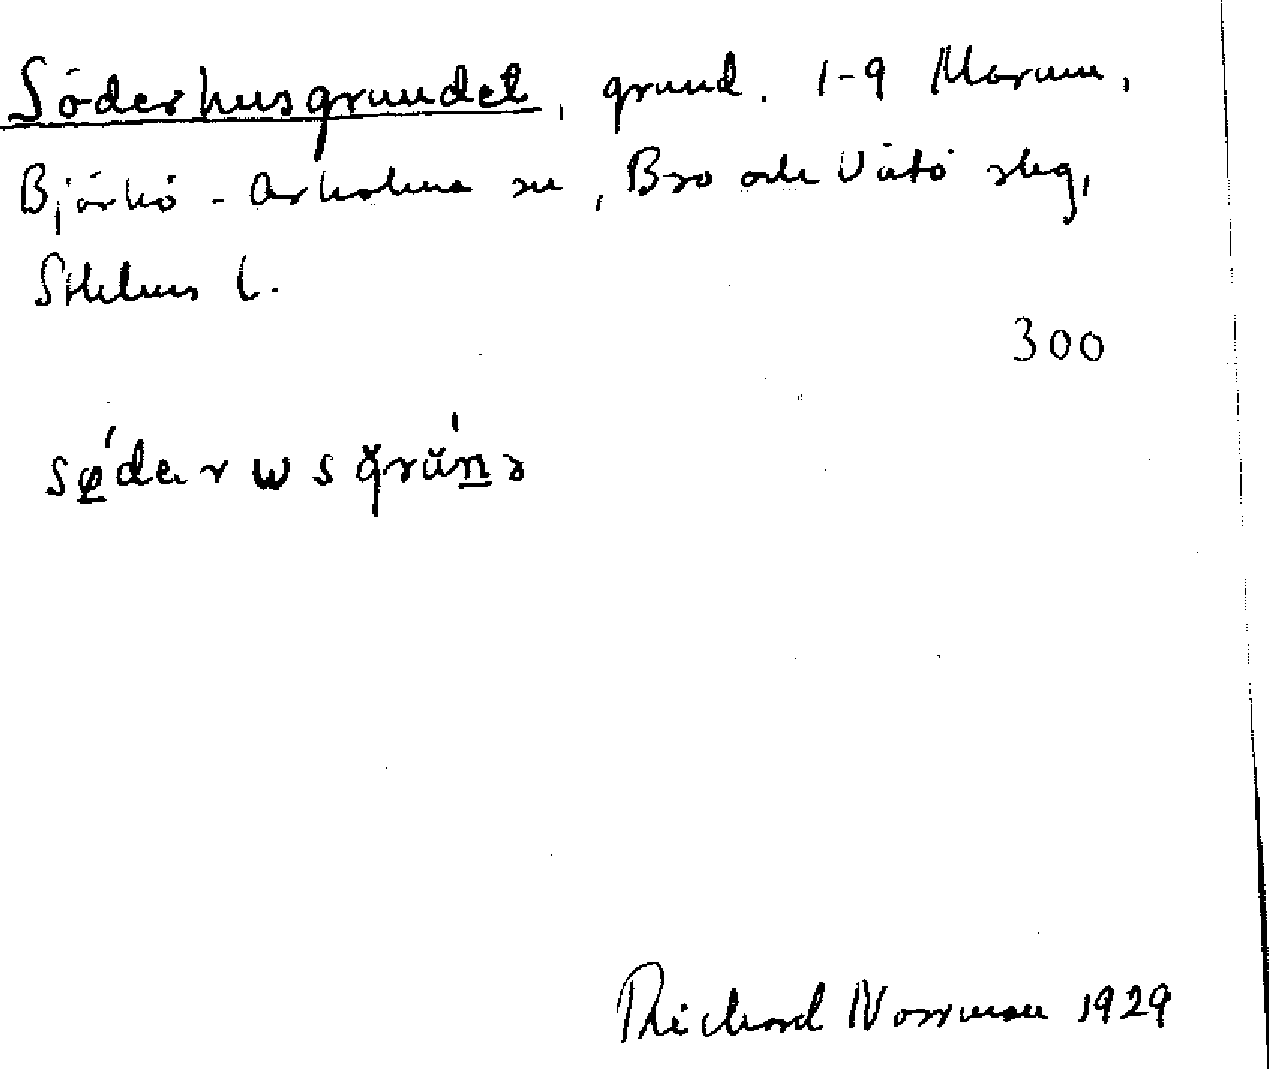 Söderhusgrundet, grund. 1-9 Marum,
Björkö - Arholma sn, Bro och Vätö skg,
Sthlms l.
300
sǿdarωsgrŭn̲ə
Richard Norrman 1929